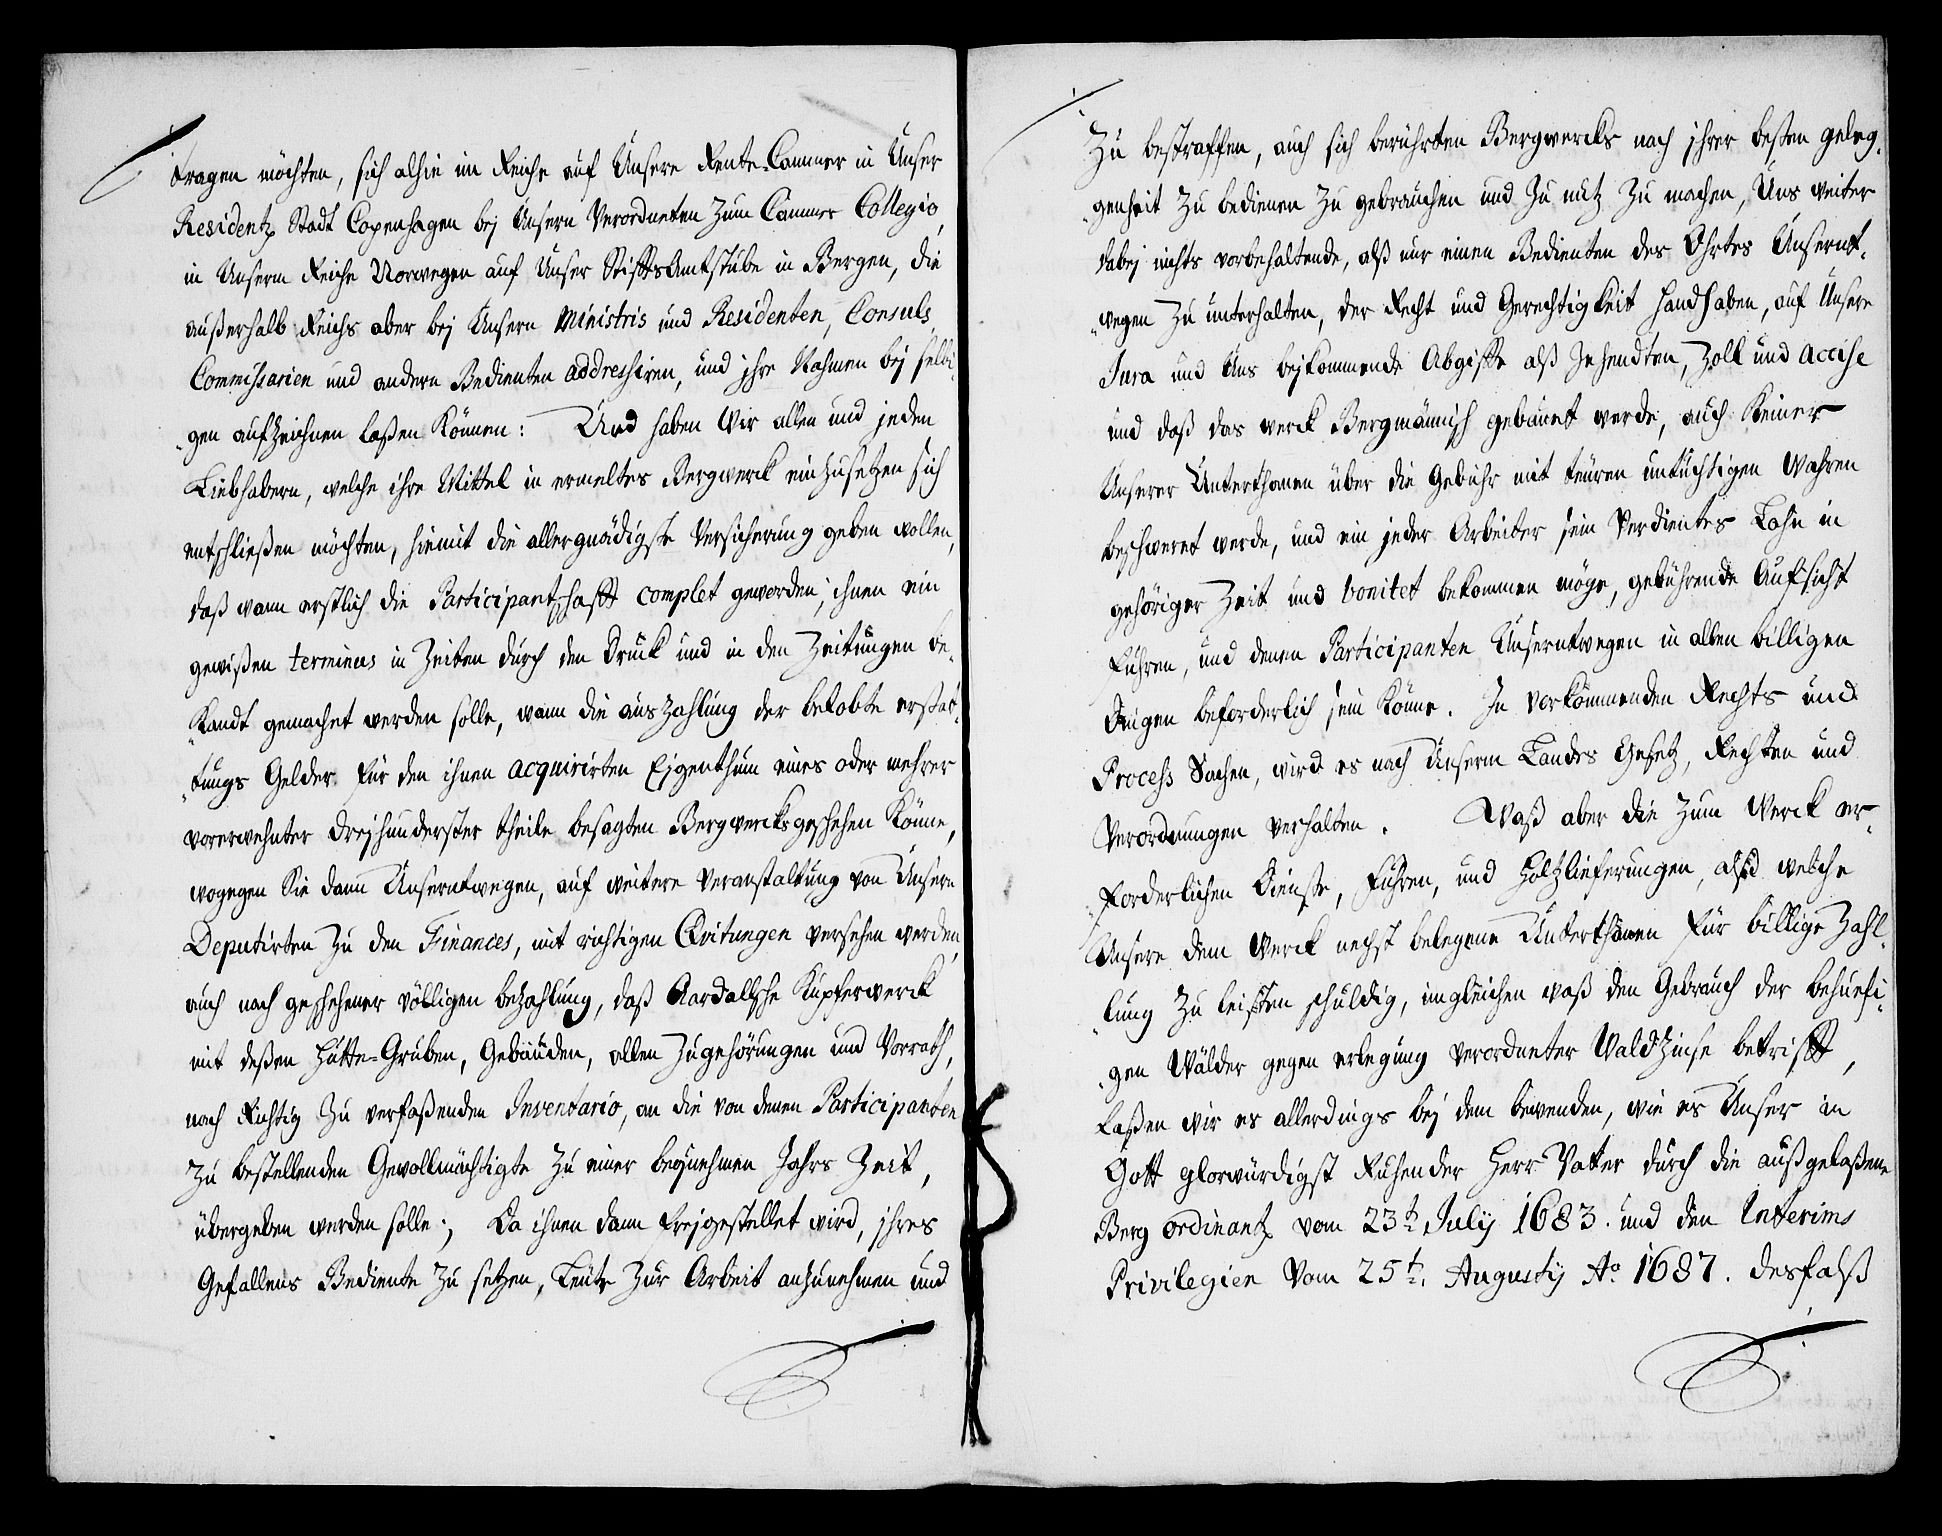 tragen möchten, sich alhie im Reiche auf Unsere Rente-Cammer in Unser
Residentz Stadt Copenhagen bej Unsern Verordneten zum Cammer Collegio,
in Unserm Reiche Norwegen auf Unser StifftsAmtstube in Bergen, die
außerhalb Reichs aber bej Unsern Ministris und Residenten, Consuls,
Commissarien und andern Bedienten addressiren, und jhre Nahmen bej selbi-
"gen aufzeichnen laßen können: Und haben Wir allen und jeden
Liebhabern, welche ihre Mittel in ermeltes Bergwerck einzusetzen sich
entschließen möchten, hiemit die allergnädigste Versicherung geben wollen,
daß wann erstlich die Participantschafft complet geworden, ihnen ein
gewißen terminus in Zeiten durch den Druck und in den Zeitungen be-
"kandt gemachet werden solle, wann die auszahlung der belobte erstat-
"tungs Gelder für den ihnen acquirirten Eigenthum eines oder mehrer
vorerwehnter drejhunderster theile besagten Bergwercks geschehen könne,
wogegen Sie dann Unserntwegen, auf weitere Veranstaltung von Unsern
Deputirten zu den Finances, mit richtigen Qvitungen versehen werden,
auch nach geschehener völligen bezahlung, daß Aardallsche Kupferwerck
mit deßen Hütte-Gruben, Gebäuden, allen Zugehörungen und Vorrath,
nach Richtig zu verfaßenden Inventario, an die von denen Participanten
zu bestellenden Gevollmächtigte zu einer bequehmen Jahrs Zeit,
übergeben werden solle; Da ihnen dann frejgestellet wird, jhres
Gefallens Bediente zu setzen, Leute zur Arbeit anzunehmen und
Zu bestraffen, auch sich berührten Bergwercks nach jhrer besten geleg-
"genheit zu bedienen zu gebrauchen und zu nutz zu machen, Uns weiter
dabej nichts vorbehaltende, alß nur einen Bedienten des Ohrtes Unsernt-
"wegen zu unterhalten, der Recht und Gerechtigkeit handhaben, auf Unsere
Jura und Uns bejkommende Abgiffte alß Zehendten, Zoll und Accise
und daß das werck Bergmännisch gebauet werde, auch keiner
Unserer Unterthanen über die Gebühr mit teuren untüchtigen Wahren
beschweret werde, und ein jeder Arbeiter sein Verdientes Lohn in
gehöriger Zeit und bonitet bekommen möge, gebührende Aufsicht
führen, und denen Participanten Unserntwegen in allen billigen
dingen beforderlich sein könne. In vorkommenden Rechts und
Process Sachen, wird es nach Unserm Landes Gesetz, Rechten und
Verordnungen verhalten. Waß aber die zum Werck er-
forderlichen Dienste, Fuhren, und Holtzlieferungen, alß welche
Unsere dem Werck nechst belegene Unterthanen für billige Zahl-
"lung zu leisten schuldig, imgleichen waß den Gebrauch der behuefi-
"gen Wälder gegen erlegung verordneter Waldzinse betrifft,
laßen wir es allerdings bej dem bewenden, wie es Unser in
Gott glorwürdigst Ruhender Herr Vatter durch die außgelaßene
Berg ordinantz vom 23t July 1683. und den Interims
Privilegien Vom 25t. Augustij Ao 1687. desfalß